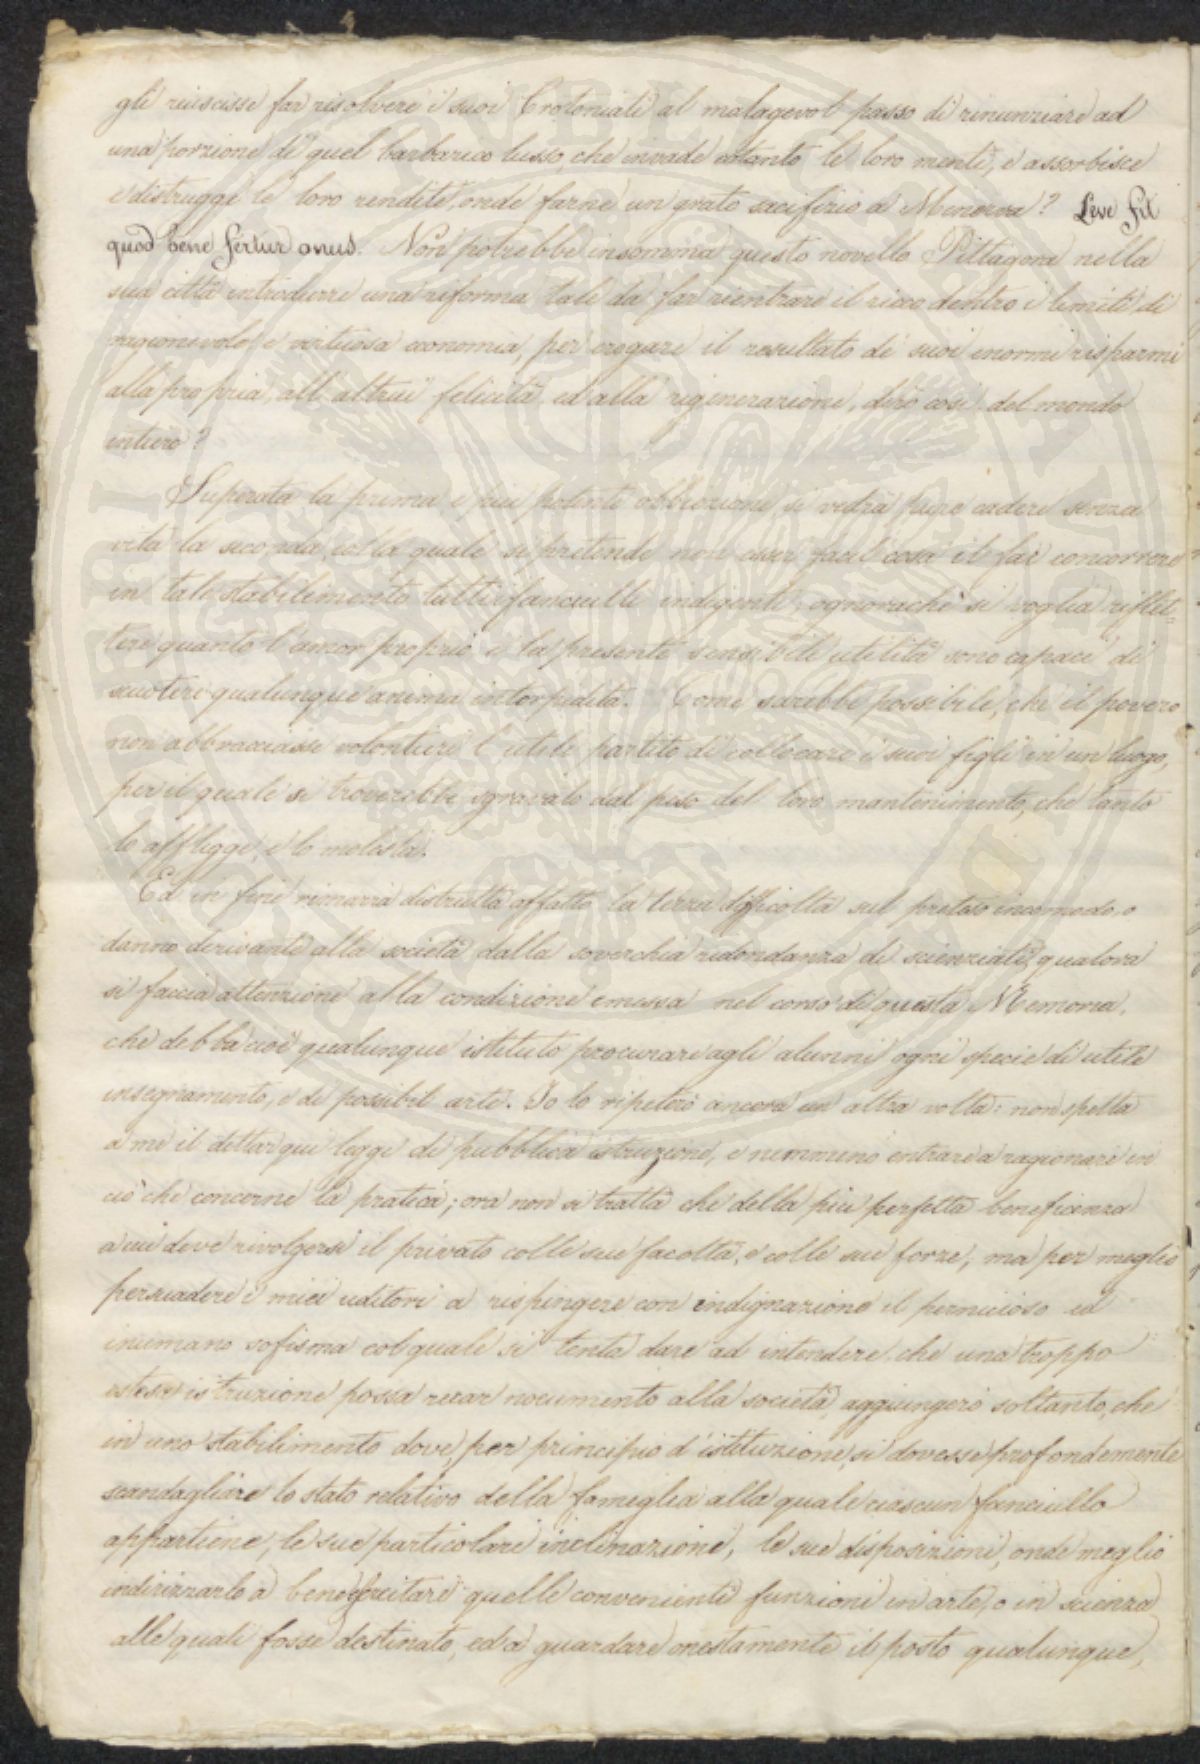 gli riuscisse far risolvere i suoi Crotoniati al malagevol passo di rinunziare ad
una porzione di quel barbarico lusso, che invade cotanto le loro menti, e assorbisce
e distrugge le loro rendite, onde farne un grato sacrifizio a Minerva? Leve fit
quod bene fertur onus. Non potrebbe insomma questo novello Pittagora nella
sua città introdurre una riforma tale da far rientrare il ricco dentro i limiti di
ragionevole, e virtuosa economia, per erogare il resultato de' suoi enormi risparmi
alla propria, all'altrui felicità, ed alla rigenerazione, dirò così, del mondo
intiero?
Superata la prima e più potente obbiezione, si vedrà pure cadere senza
vita la seconda, colla quale si pretende non esser facil cosa il far concorrere
in tale stabilimento tutti i fanciulli indigenti, ognorachè si voglia riflet-
tere quanto l'amor proprio e la presente sensibile utilità sono capaci di
scuotere qualunque anima intorpidita. Come sarebbe possibile, che il povero
non abbracciasse volontieri l'utile partito di collocare i suoi figli in un luogo,
per il quale si troverebbe sgravato dal peso del loro mantenimento, che tanto
lo affligge, e lo molesta.
Ed in fine rimarrà distrutta affatto la terza difficoltà sul preteso incomodo, o
danno derivante alla società dalla soverchia ridondanza di scienziati, qualora
si faccia attenzione alla condizione emessa nel corso di questa Memoria,
che debba cioè qualunque istituto procurare agli alunni ogni specie di utile
insegnamento, e di possibil arte. Io lo ripeterò ancora un'altra volta: non spetta
a me il dettar qui leggi di pubblica istruzione, e nemmeno entrare a ragionare in
ciò che concerne la pratica; ora non si tratta che della più perfetta beneficenza
a cui deve rivolgersi il privato colle sue facoltà, e colle sue forze; ma per meglio
persuadere i miei uditori a rispingere con indignazione il pernicioso ed
inumano sofisma col quale si tenta dare ad intendere, che una troppo
estesa istruzione possa recar nocumento alla società, aggiungerò soltanto, che
in uno stabilimento dove, per principio d'istituzione, si dovesse profondemente
scandagliare lo stato relativo della fameglia alla quale ciascun fanciullo
appartiene, le sue particolari inclinazione, le sue disposizioni, onde meglio
indirizzarlo a bene esercitare quelle convenienti funzioni in arte, o in scienza
alle quali fosse destinato, ed a guardare onestamente il posto qualunque,